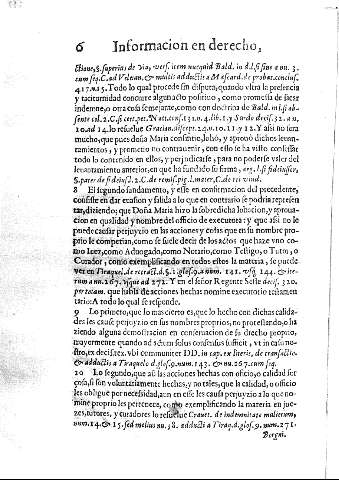 6 Informacion en derecho,
ctione, §. superius de via, vers. item nunquid Bald. in d.l. si sine a nu. 3.
cum seq. C. ad Velleian. & multis adductis a Mascard. de probat. conclus.
417. n. 15. Todo lo qual procede sin disputa, quando vltra la presencia
y taciturnidad concurre algun acto positiuo, como promessa de sacar
indemne, o otra cosa semejante, como con doctrina de Bald. in l. si ab-
10. ad 14. lo resuelue Gracian. discept. 24. n. 10. 11. y 12. Y assi no sera
mucho, que pues doña Maria consintio, loho, y aprouò dichos leuan-
tamientos, y prometio no contrauenir, con ello se ha visto confessar
todo lo contenido en ellos, y perjudicarse, para no poderse valer del
leuantamiento anterior, en que ha fundado su firma,
8 El segundo fundamento, y esse en confirmacion del precedente,
consiste en dar euasion y salida a lo que en contrario se podria represen-
tar, diziendo; que Doña Maria hizo la sobredicha lobacion, y aproua-
cion en qualidad y nombre del officio de executora: y que assi no le
puede causar perjuyzio en las acciones y cosas que en su nombre pro-
prio le competian, como se suele dezir de los actos que haze vno co-
mo Iuez, como Aduogado, como Notario, como Testigo, o Tutor, o
Curador, como exemplificando en todos estos la materia, se puede
ver en Tiraquel. de retract. d. §. 1. glos. 9. a num. 141. vsq; 144. & ite-
rum ann. 267. vsque ad 272. Y en el señor Regente Sesse decis. 320.
per totam. que habla de acciones hechas nomine executorio testamen-
tario: A todo lo qual se responde.
9 Lo primero, que lo mas cierto es, que lo hecho con dichas calida-
des les causa perjuyzio en sus nombres proprios, no protestandolo, o ha
ziendo alguna demostracion en conseruacion de su derecho proprio,
mayormente quando ad actum solus consensus sufficit, vt in casu no-
stro, ex decis. tex. vbi communiter DD. in cap. ex literis, de transactio.
& adductis a Tiraquelo d. glos. 9. num. 143. & nu. 267. cum seq.
10 Lo segundo, que aũ las acciones hechas con oficio, o calidad for
çosa, si son voluntariamente hechas, y no tales, que la calidad, o oficio
les obligue por necesidad, aun en esse les causa perjuyzio a lo que no-
mine proprio les pertenece, como exemplificando la materia en jue-
zes, tutores, y curadores lo resuelue Crauet. de indemnitate mulierum,
num. 14. & 15. sed melius nu. 38. adductis a Tiraq. d. glos. 9. num. 271.
Bergni.